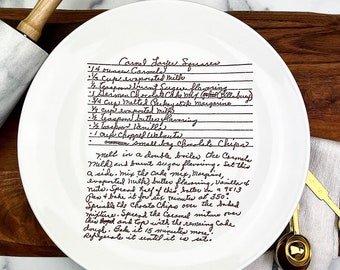 Carmel Layer Squares
14 ounces Caramels
⅓ cups evaporated Milk
½ teaspoon Burnt Sugar flavoring
1 German Chocolate Cake mix Pillsbury
¾ cup Melted stick Margarine
⅓ cup evaporated milk
½ teaspoon butter flavoring
½ teaspoon Vanilla
1 cup Chopped Walnuts
small bag Chocolate Chips
Melt in a double boiler the Caramels,
Milk, and burnt sugar flavoring. Set this
a side. Mix the Cake mix, Margarine,
evaporated Milk, butter flavoring, Vanilla &
nuts. Spread half of this batter in a 9x13
Pan & bake it for six minutes at 350°.
Sprinkle the Chocolate Chips over the baked
mixture. Spread the Caramel mixture over
this and top with the remaining Cake
dough. Bake it 15 minutes more.
Refrigerate it until it is set.